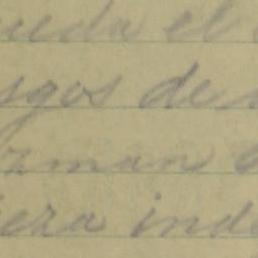 ueda el
sgos de
rman
iera inde